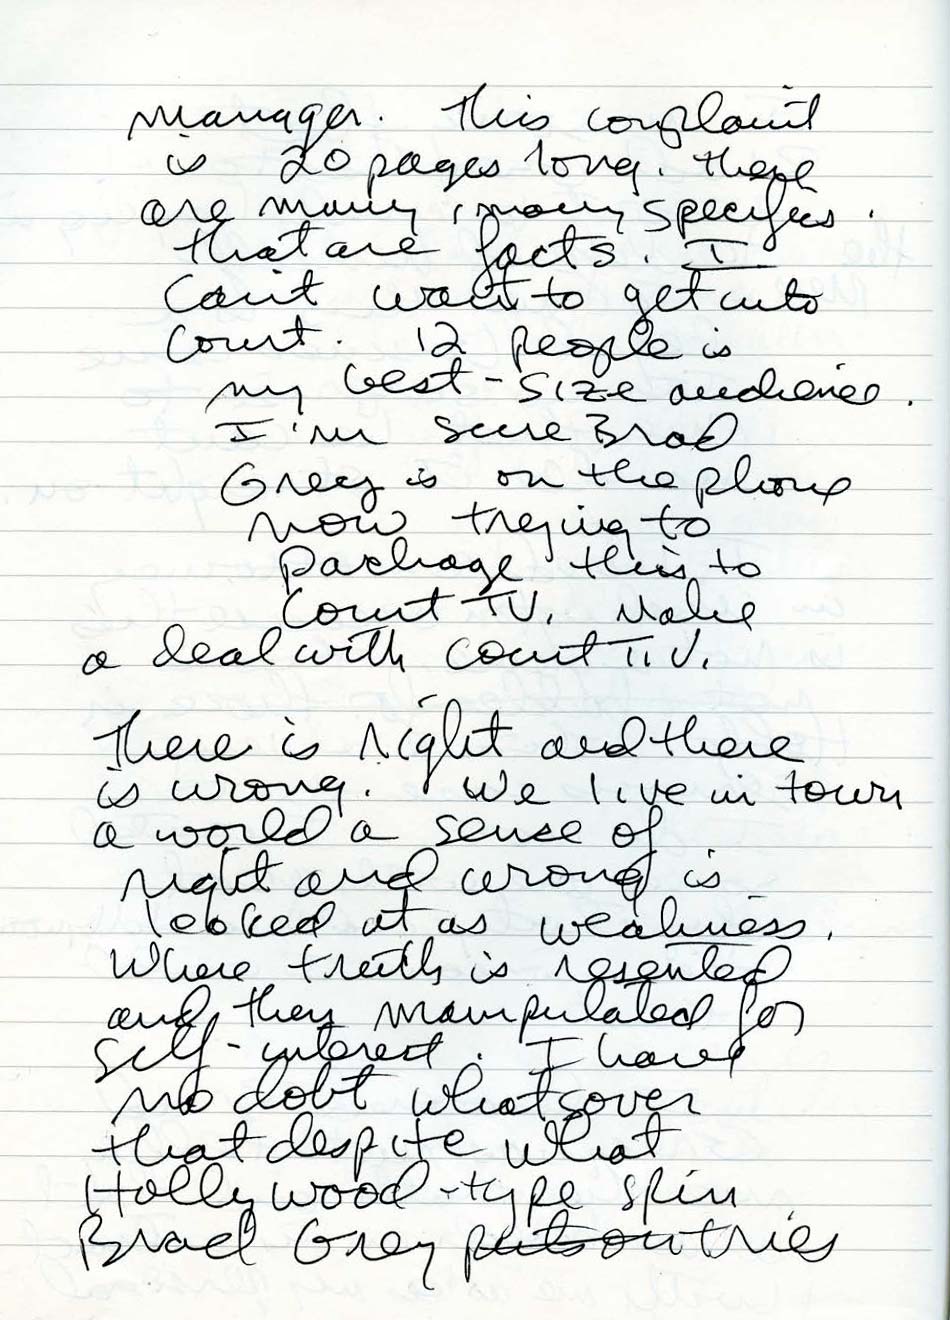 manager. This complaint
is 20 pages long. there
are many, many specifics.
that are facts. I
Can't wait to get into
Court. 12 people is
my best-size audience.
I'm sure Brad
Grey is on the phone
now trying to
package this to
Court TV. Make
a deal with Court T.V.
There is right and there
is wrong. We live in town
a world a sense of
right and wrong is
looked at as weakness.
Where truth is resented
and they manipulated for
self-interest. I have
no dobt whatsover
that despite what
Hollywood-type spin
Brad Grey puts out tries